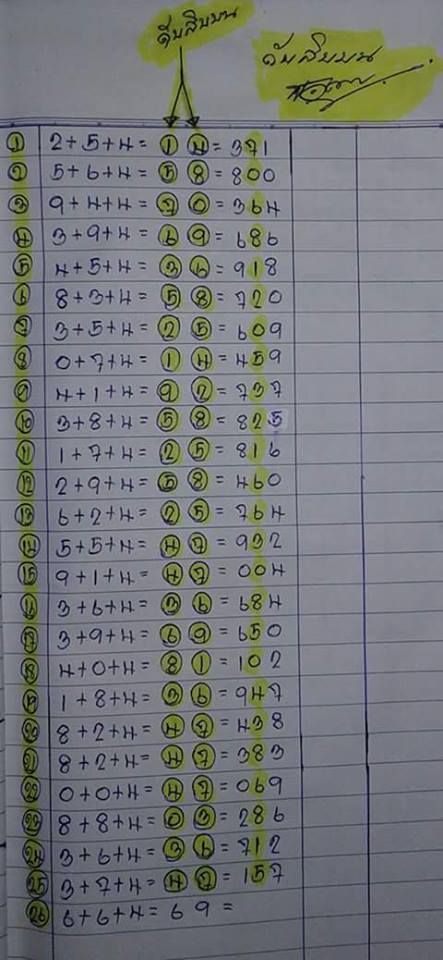 ดับสิบบน
ดับสิบบน
1 2+5+4= 1 4 = 371
2 5+6+4= 5 8 = 800
3 9+4+4= 7 0 = 364
4 3+9+4= 6 9 = 686
5 4+5+4= 3 6 = 918
6 8+3+4= 5 8 = 720
7 3+5+4= 2 5 = 609
8 0+7+4= 1 4 = 459
9 4+1+4= 9 2 = 737
10 3+8+4= 5 8 = 825
11 1+7+4= 2 5 = 816
12 2+9+4= 5 8 = 460
13 6+2+4= 2 5 = 764
14 5+5+4= 4 7 = 932
15 9+1+4= 4 7 = 004
16 3+6+4= 3 6 = 684
17 3+9+4= 6 9 = 650
18 4+0+4= 8 1 = 102
19 1+8+4= 3 6 = 947
20 8+2+4= 4 7 = 438
21 8+2+4= 4 7 = 383
22 0+0+4= 4 7 = 069
23 8+8+4= 0 3 = 286
24 3+6+4= 3 6 = 712
25 3+7+4= 4 7 = 157
26 6+6+4= 6 9 =